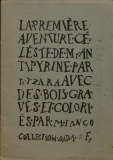 LA PREMIÈRE
AVENTURE CÉ
LÉSTE DE Mr AN
TYPYRINE PAR
T.TZARA AVEC
DES BOIS GRA
VÉS ET COLORI
ÉS PAR M.JANCO
COLLECTION DADA